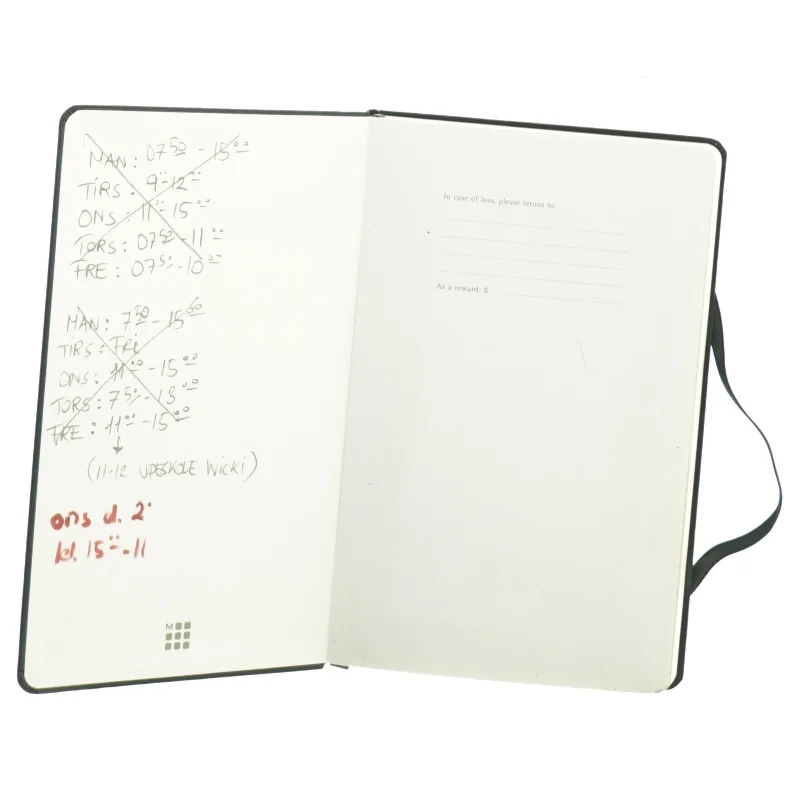 MAN: 07⁵⁰ - 15⁰⁰
TIRS: 9⁻-12⁻
ONS: 11⁰⁰-15⁰⁰
TORS: 07⁵⁰-11⁰⁰
FRE: 07⁵⁰-10⁰⁰
MAN: 7⁵⁰ - 15⁰⁰
TIRS: Fri
ONS: 11⁰⁰ -15⁰⁰
TORS: 7⁵⁰-13⁰⁰
FRE: 11⁰⁰-15⁰⁰
(11-12 Wicki)
ons d. 2
kl. 15⁰⁰-11
M
In case of loss, please return to:
As a reward: $